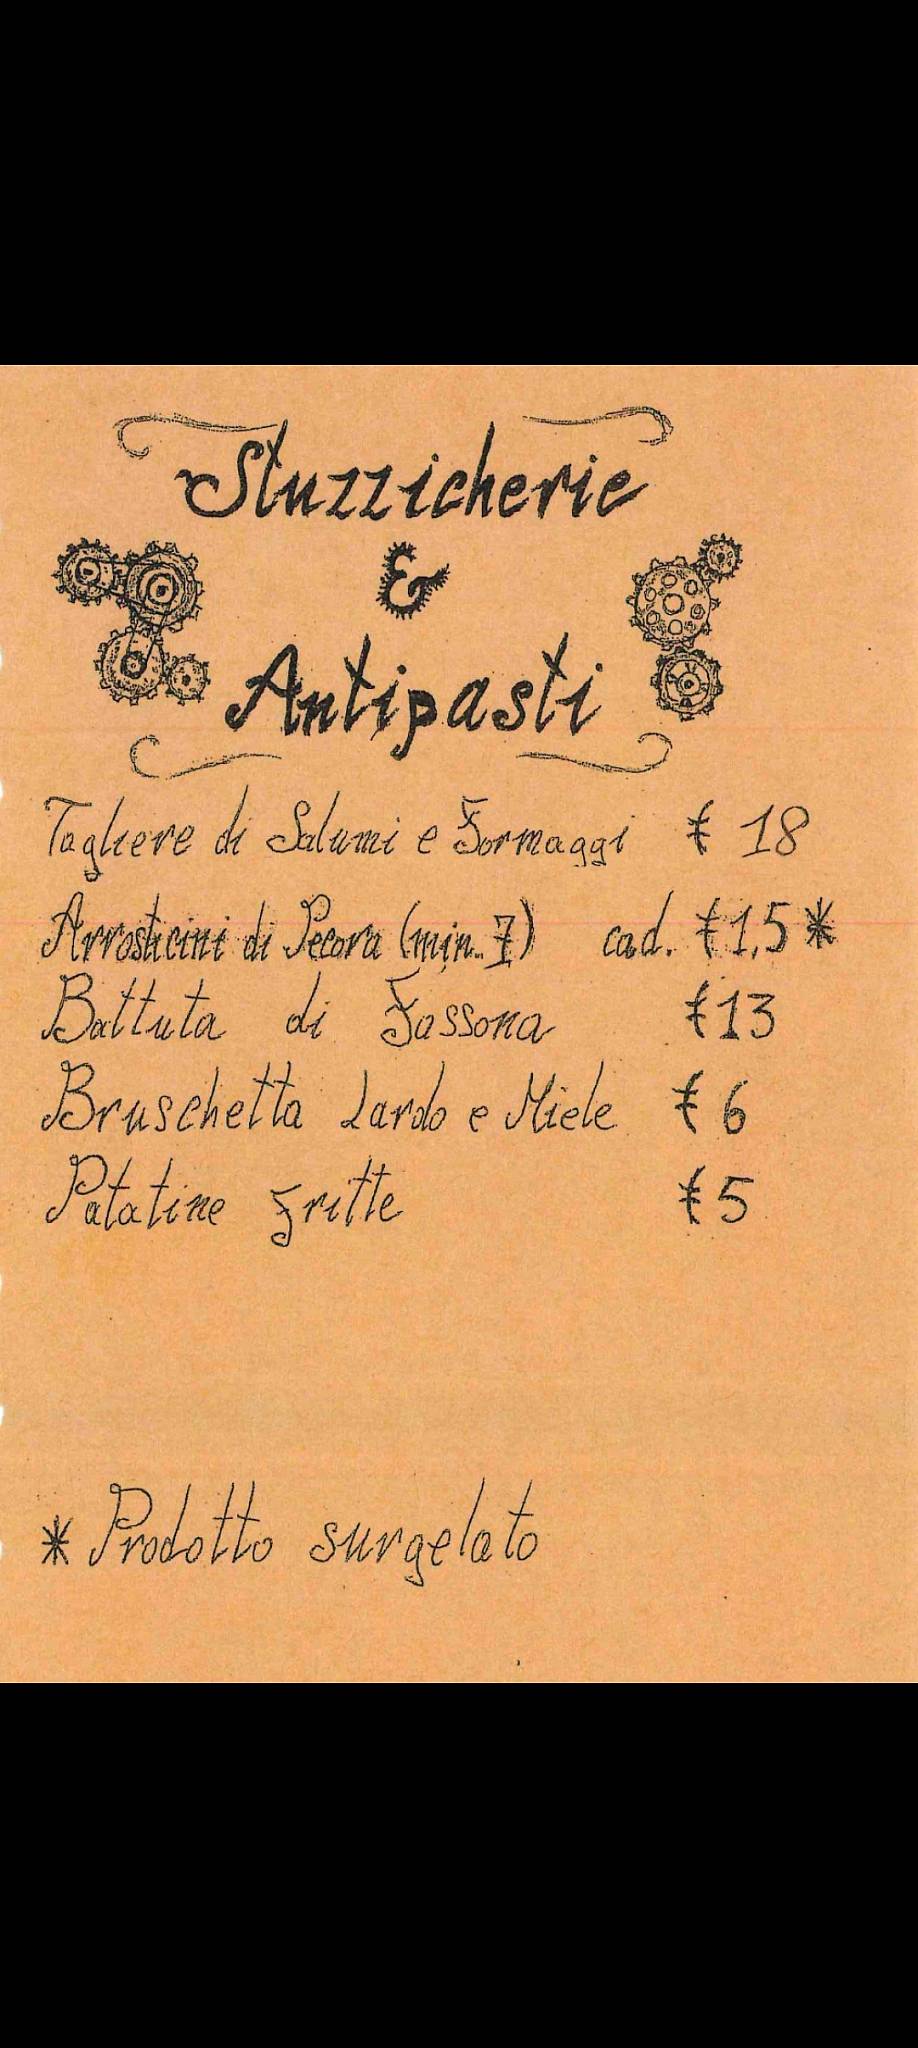 Stuzzicherie
&
Antipasti
Tagliere di Salumi e Formaggi € 18
Arrosticini di Pecora (min. 7) cad. €1,5 *
Battuta di Fassona €13
Bruschetta Lardo e Miele € 6
Patatine Fritte €5
* Prodotto surgelato